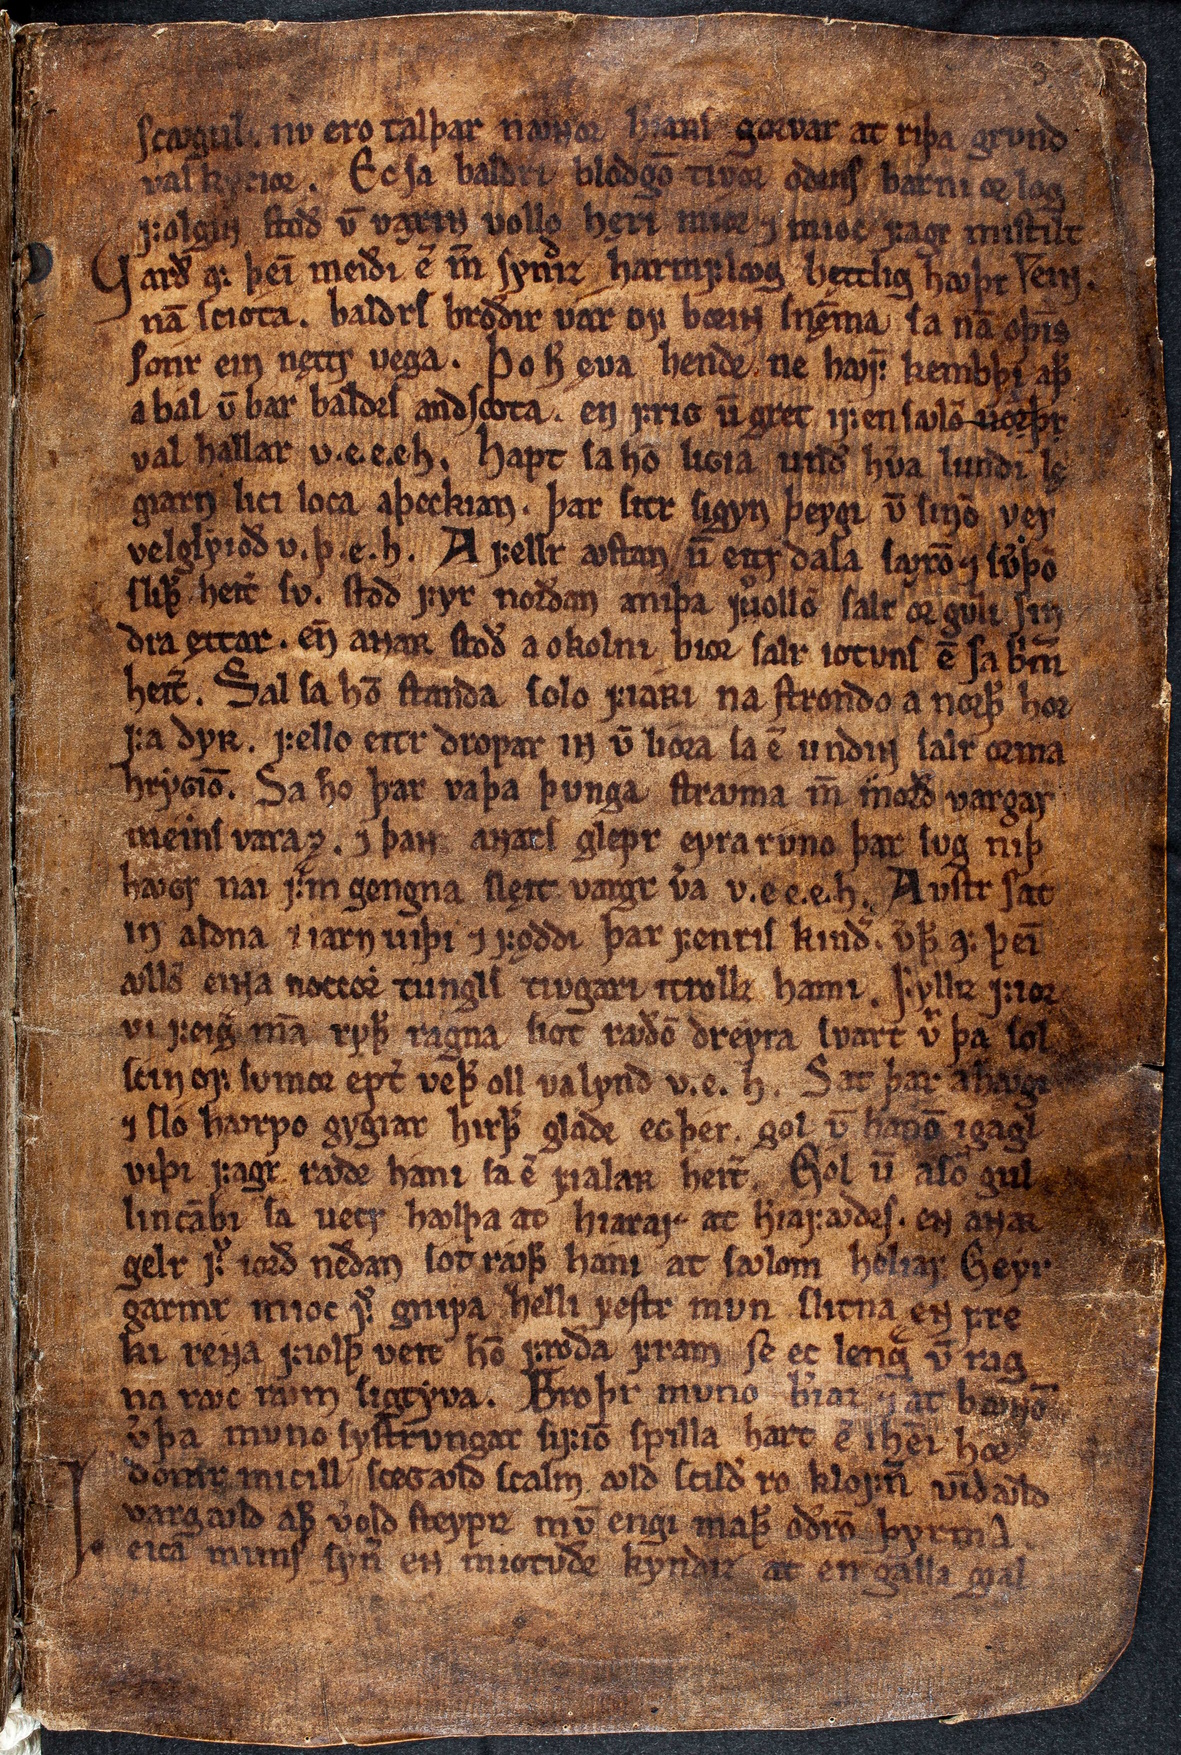 3
scꜹgul. nv ero talþar nꜹnor h̅ians gorvar at riþa grvnd
valkyrior. Ec sa baldri blodgō tivor odins barni ør lꜹg
folgin stod v̅ vaxin vollo hęri mior ⁊ mioc fagr mistilt
Varð af þei̅ meiði e̅ m̅ syndiz harmflꜹg hęttlig hꜹþr ⸌nam⸍
nā sciota. baldrs broðir var of borin snēma sa nā oþins
sonr ein nęttr vega. Þo h̅ ęva hendr ne hꜹf: kembþi aþ̅
a bal v̅ bar baldrs andscota. en frig v̅ gret i fensꜹlō vorþr
val hallar v.e.e.e.h. Hapt sa hō ligia und̅ hv̅a lundi lę
giarn liki loca aþeckian. þar sitr sigyn þeygi v̅ sinō ver
velglyioð v.þ.e.h. A fellr ꜹstan v̅ eitrdala sꜹxō ⁊ sv̅þō
sliþ̅ heit̅ sv. stod fyr nordan aniþa vollō salr or gvlli sin
dra ęttar. en̅ aɴaʀ stod a okolni bior salr iotvns e̅ sa brim̅
heit̅. Sal sa hō standa solo fiaʀi nastrondo a norþ̅ hor
fa dyʀ. fello eitr dropar iɴ v̅ liora sa e̅ undiɴ salr orma
hrygiō. Sa ho þar vaþa þvnga strꜹma m̅ meinsvara
⁊ morðvargar. ⁊ þaɴ aɴars glepr eyrarvno þar svg niþ
hꜹgr nai fra̅gengna sleit vargr v̅a v.e.e.e.h. Avstr sat
in aldna i iarnviþi ⁊ fǫddi þar fenris kind̅. v̅þ̅ af þei̅
ꜹllō eiɴa noccor tungls tivgari i trollz hami. Fylliz fior
vi feig̅ ma̅ ryþ̅ ragna siot rꜹðō dreyra svart v̅ þa sol
scin of svmor ept̅ veþ̅ oll valynd v.e.h. Sat þar a hꜹgi
⁊ slo hꜹrpo gygiar hirþ̅ glaðr egþer. gol v̅ hanō igagl
viþi fagr rꜹðr hani sa e̅ fialaʀ heit̅. Gol v̅ asō gvl
linca̅bi sa vecr hꜹlþa at hiarar at h̅iafꜹdrs. en aɴaʀ
gelr f̅ iorð neðan sotrꜹþ̅ hani at sꜹlom heliar Geyr
garmr mioc f̅ gnipa helli festr mvn slitna en fre
ki reɴa fiolþ̅ veit hō frǫða fram se ec leng̅ v̅ rag
na rꜹc rꜹm sigtyva. Brǫþr mvno b̅iaz ⁊ at bꜹnō
v̅þa mvno systrvngar sifiō spilla hart e̅ i hei̅ hor
domr mikill sceggꜹld scalm ꜹld scild̅ ro klofn̅ vindꜹld
vargꜹld aþ̅ v̅old steypiz mv̅ engi maþ̅ oðrō þyrma.
Leica mims syn̅ en miotvðr kyndiz at en galla gial